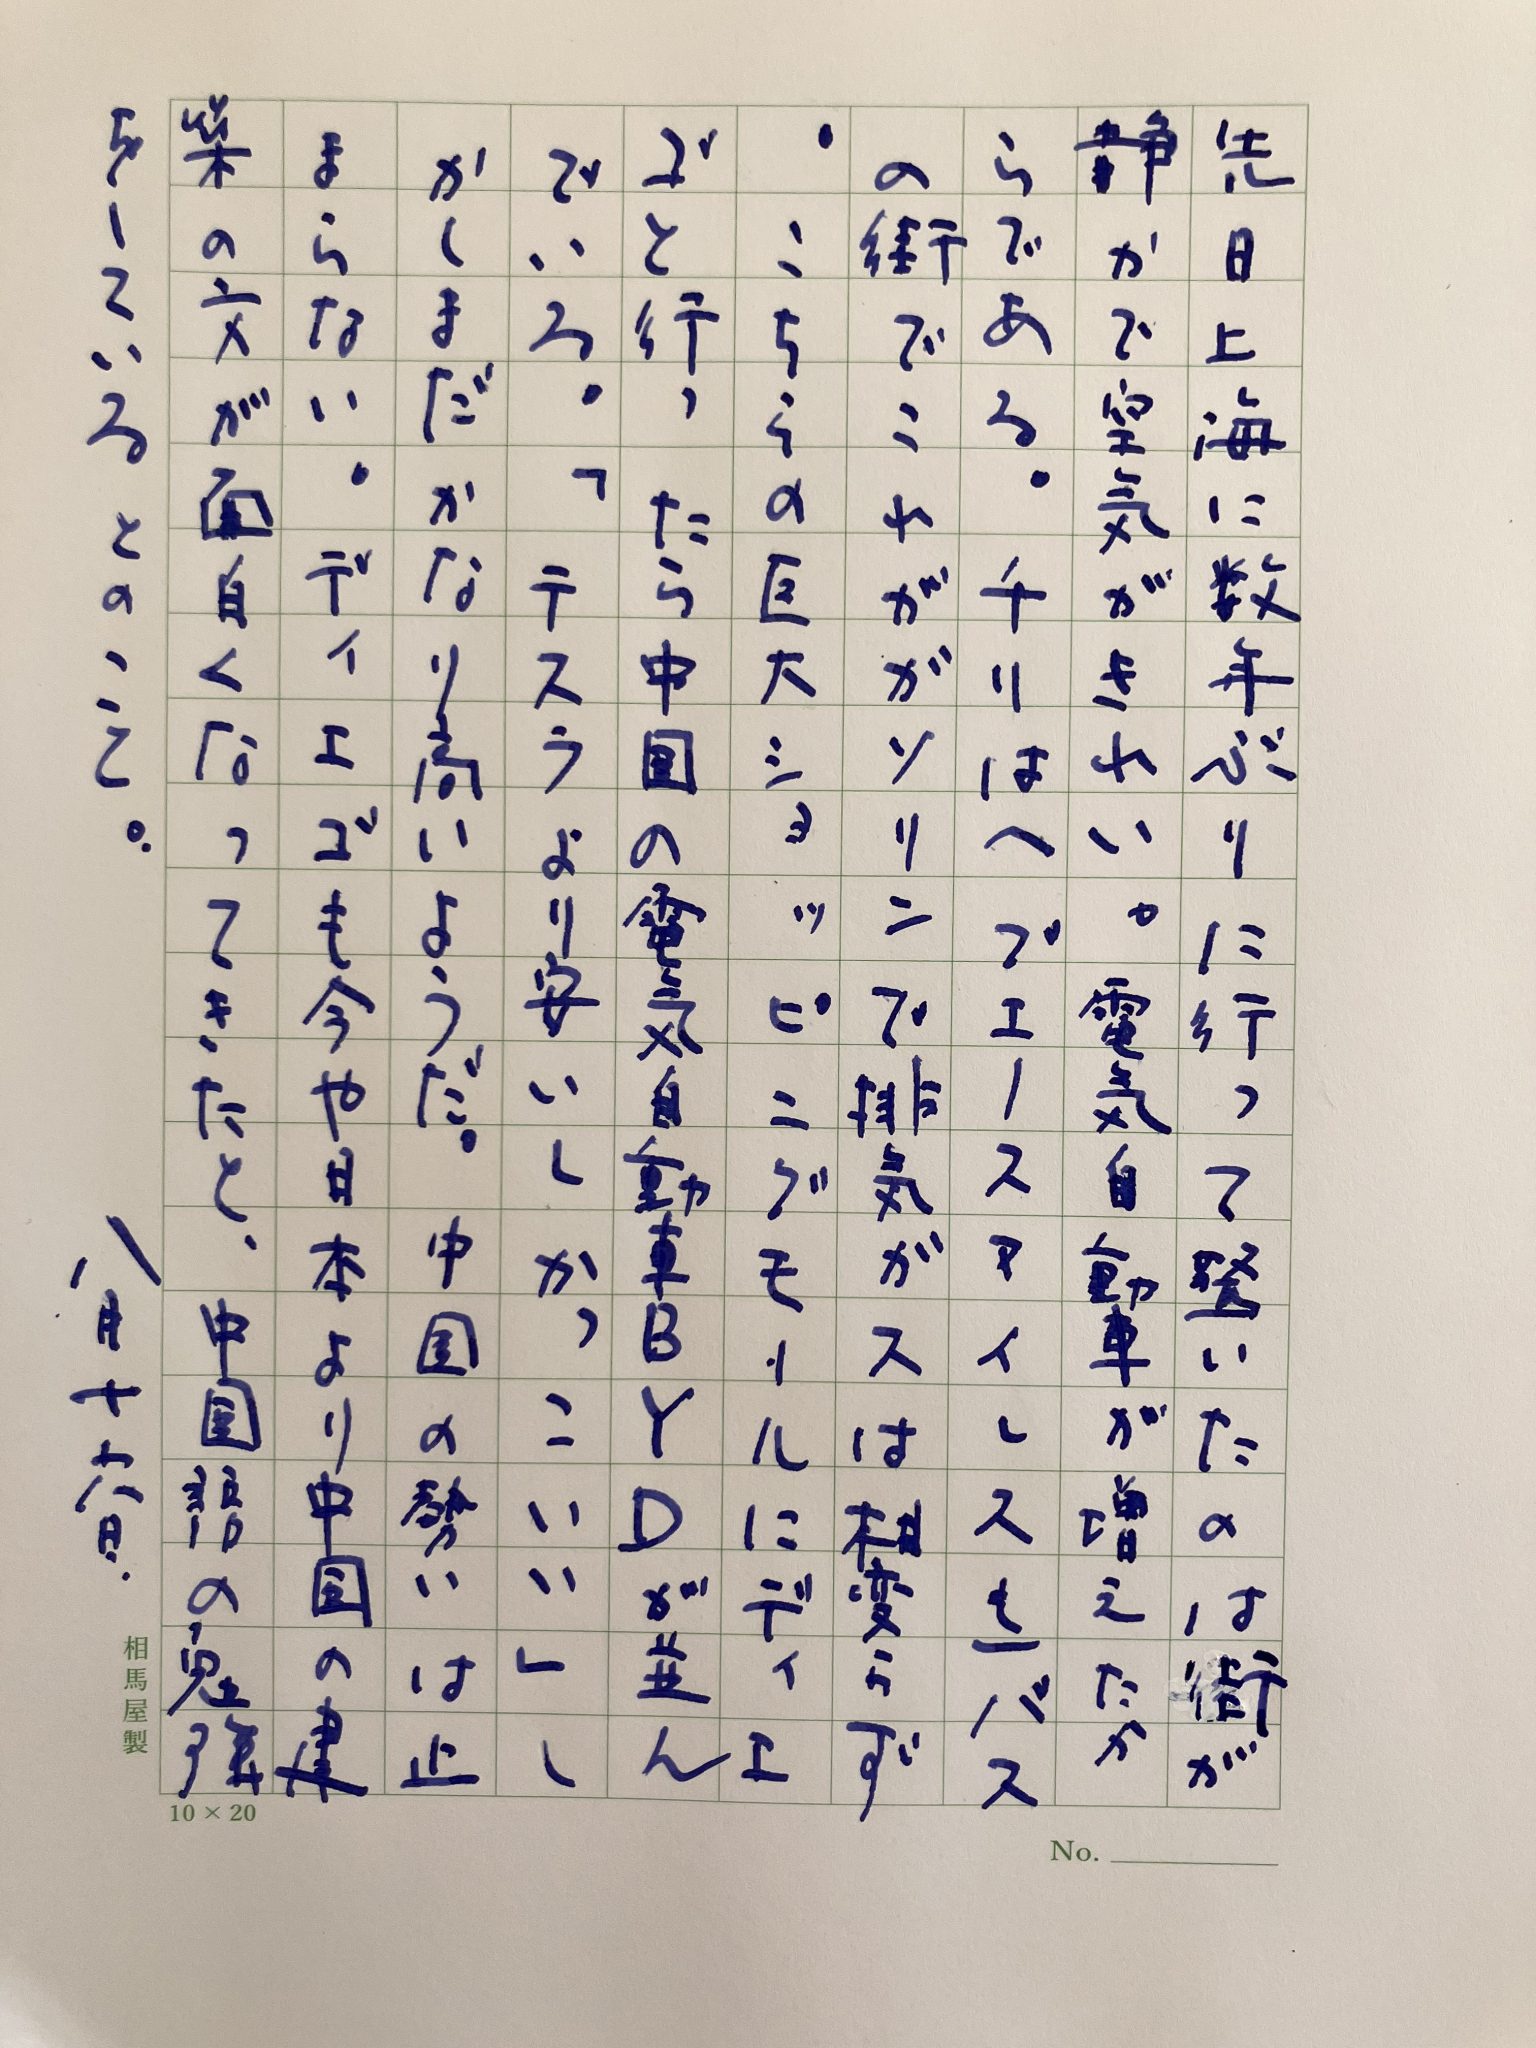 先日上海に数年ぶりに行って驚いたのは街が
静かで空気がきれい。電気自動車が増えたか
らである。チリはヘブエノスアイレスもバス
の街でこれがガソリンで排気ガスは相変らず
。こちらの巨大ショッピングモールにディエ
ゴと行ったら中国の電気自動車BYDが並ん
でいる。「テスラより安いしかっこいい」し
かしまだかなり高いようだ。中国の勢いは止
まらない。ディエゴも今や日本より中国の建
築の方が面白くなってきたと、中国語の勉強
をしているとのこと。
八月十六日.
相馬屋製
10×20
No.